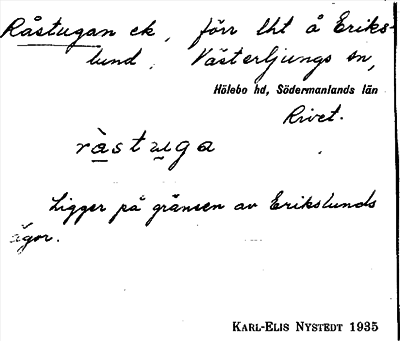 Råstugan ek, förr lht å Eriks-
lund, Västerljungs sn,
Hölebo hd, Södermanlands län
Rivet.
ràstuga
Ligger på gränsen av Erikslunds
ägor.
KARL-ELIS NYSTEDT 1935